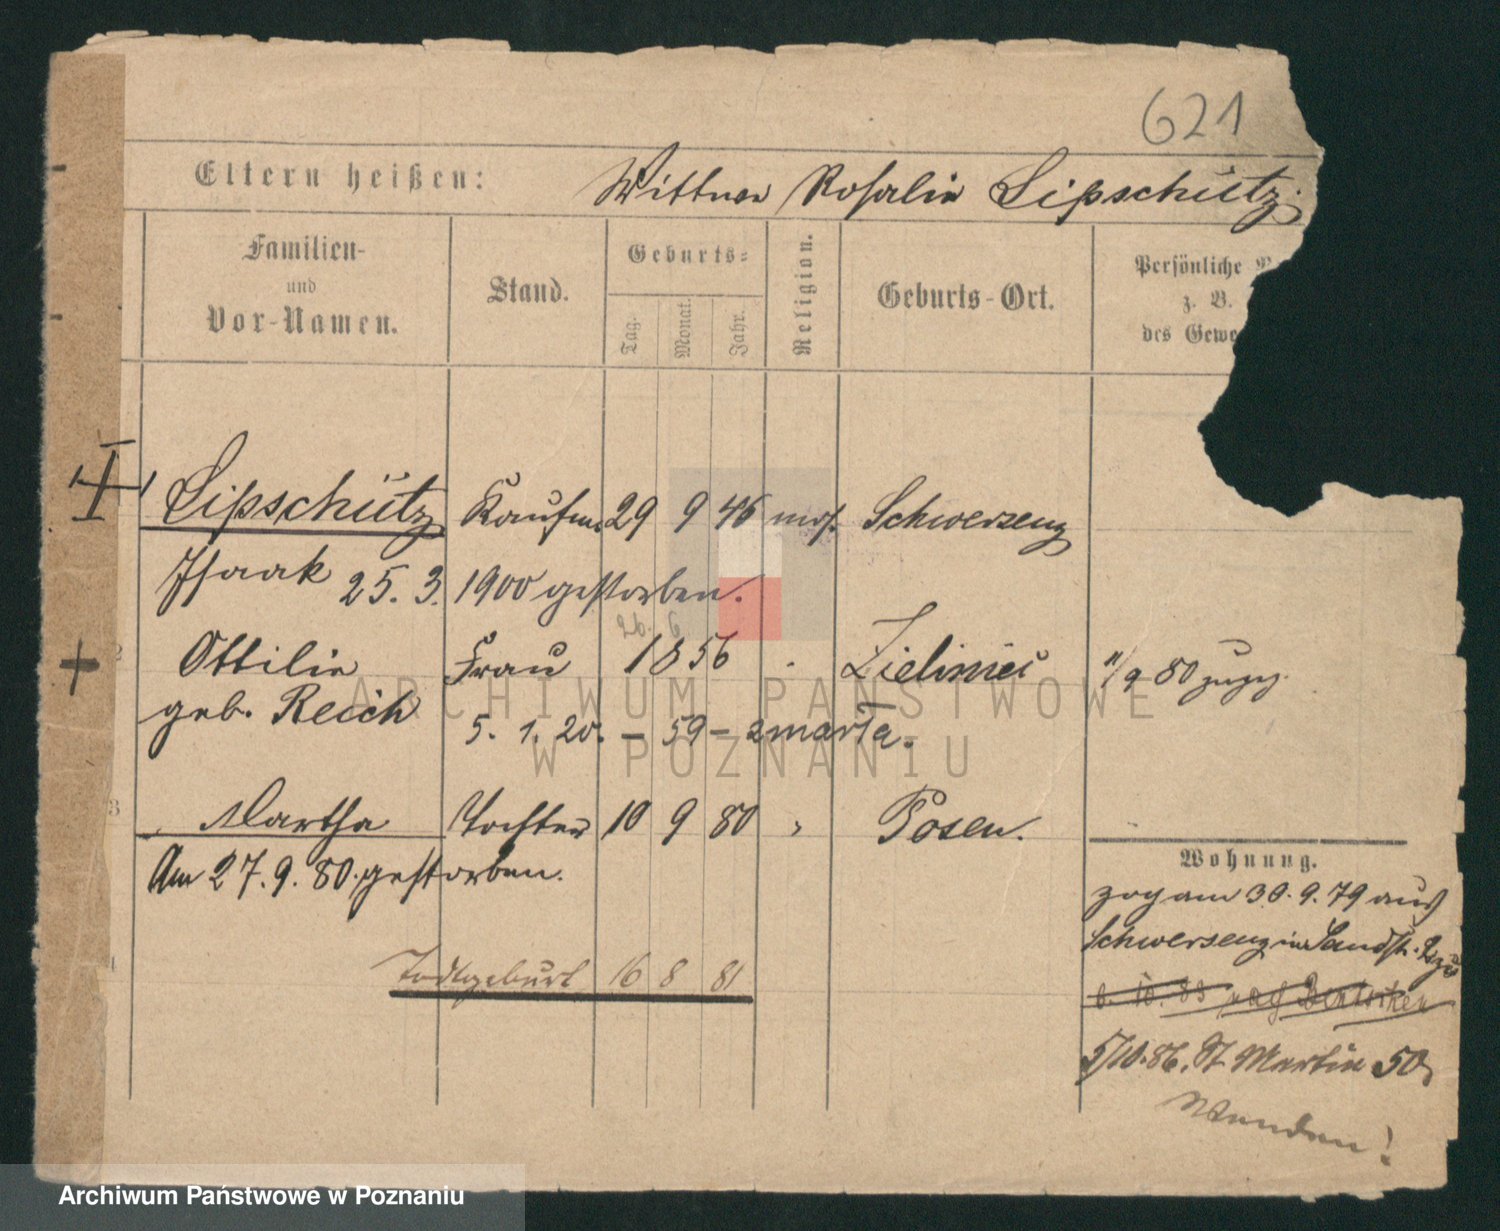 621
Eltern heißen: Wittwe Rosalie Lipschütz.
Familien- und Vor-Namen. Stand. Geburts- Tag. Monat. Jahr. Religion. Geburts-Ort. Persönliche
z. B.
des Gewe
I
Lipschütz Kaufm. 29 9 46 mos. Schwersenz
Isaak 25. 3. 1900 gestorben.
26. 6
2 Ottilie Frau 1856 Zielinied 11/9 80 zugez.
geb. Reich
5. 1. 20. – 59 – zmarła.
3 Martha Tochter 10 9 80 Posen.
Am 27. 9. 80. gestorben.
Todtgeburt 16 8 81
Wohnung.
zog am 30. 9. 79 aus
Schwersenz in Sandstr.
6. 10. 83 nach
5/10. 86. St Martin 50
Wenden!
ARCHIWUM PAŃSTWOWE
W POZNANIU
Archiwum Państwowe w Poznaniu